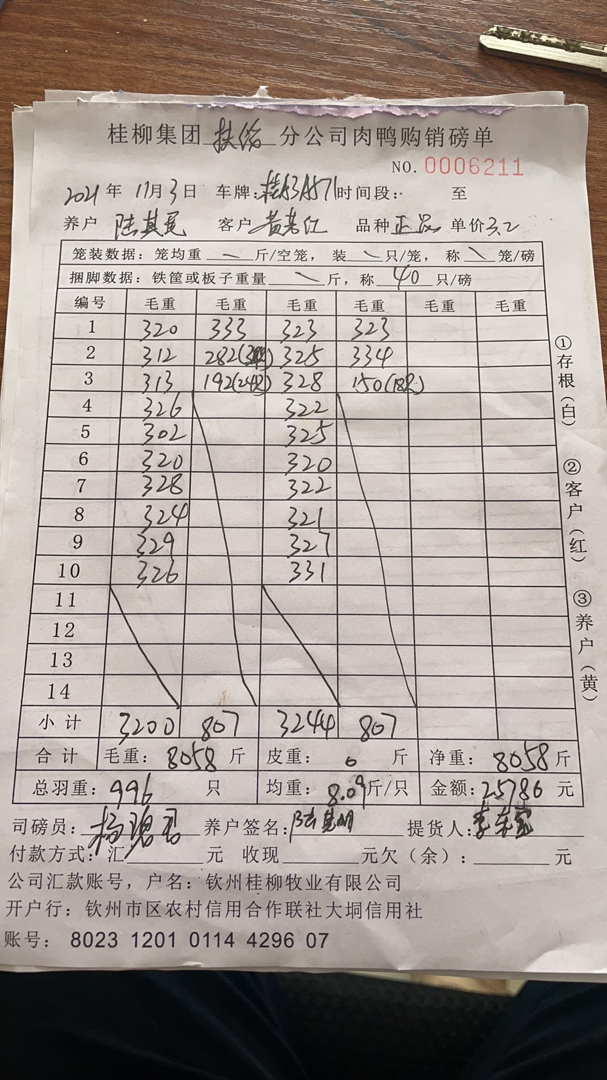 桂柳集团 分公司肉鸭购销磅单
NO. 0006211
2021年 11月3日 车牌: 时间段: 至
养户 陆其 客户 黄 红 品种 正品 单价 3.2
笼装数据: 笼均重 斤/空笼, 装 只/笼, 称 笼/磅
捆脚数据: 铁筐或板子重量 斤, 称 40 只/磅
编号 毛重 毛重 毛重 毛重 毛重 毛重
1 320 333 323 323
2 312 282 325 334
3 313 192 328 150
4 326 322
5 302 325
6 320 320
7 328 322
8 324 321
9 329 327
10 326 331
11
12
13
14
小计 3200 807 3244 807
合计 毛重: 8058 斤 皮重: 0 斤 净重: 8058 斤
总羽重: 996 只 均重: 8.09 斤/只 金额: 25786 元
司磅员: 杨 养户签名: 陆其明 提货人: 李
付款方式: 汇 元 收现 元欠(余): 元
公司汇款账号, 户名: 钦州桂柳牧业有限公司
开户行: 钦州市区农村信用合作联社大垌信用社
账号: 8023 1201 0114 4296 07
①存根(白)
②客户(红)
③养户(黄)